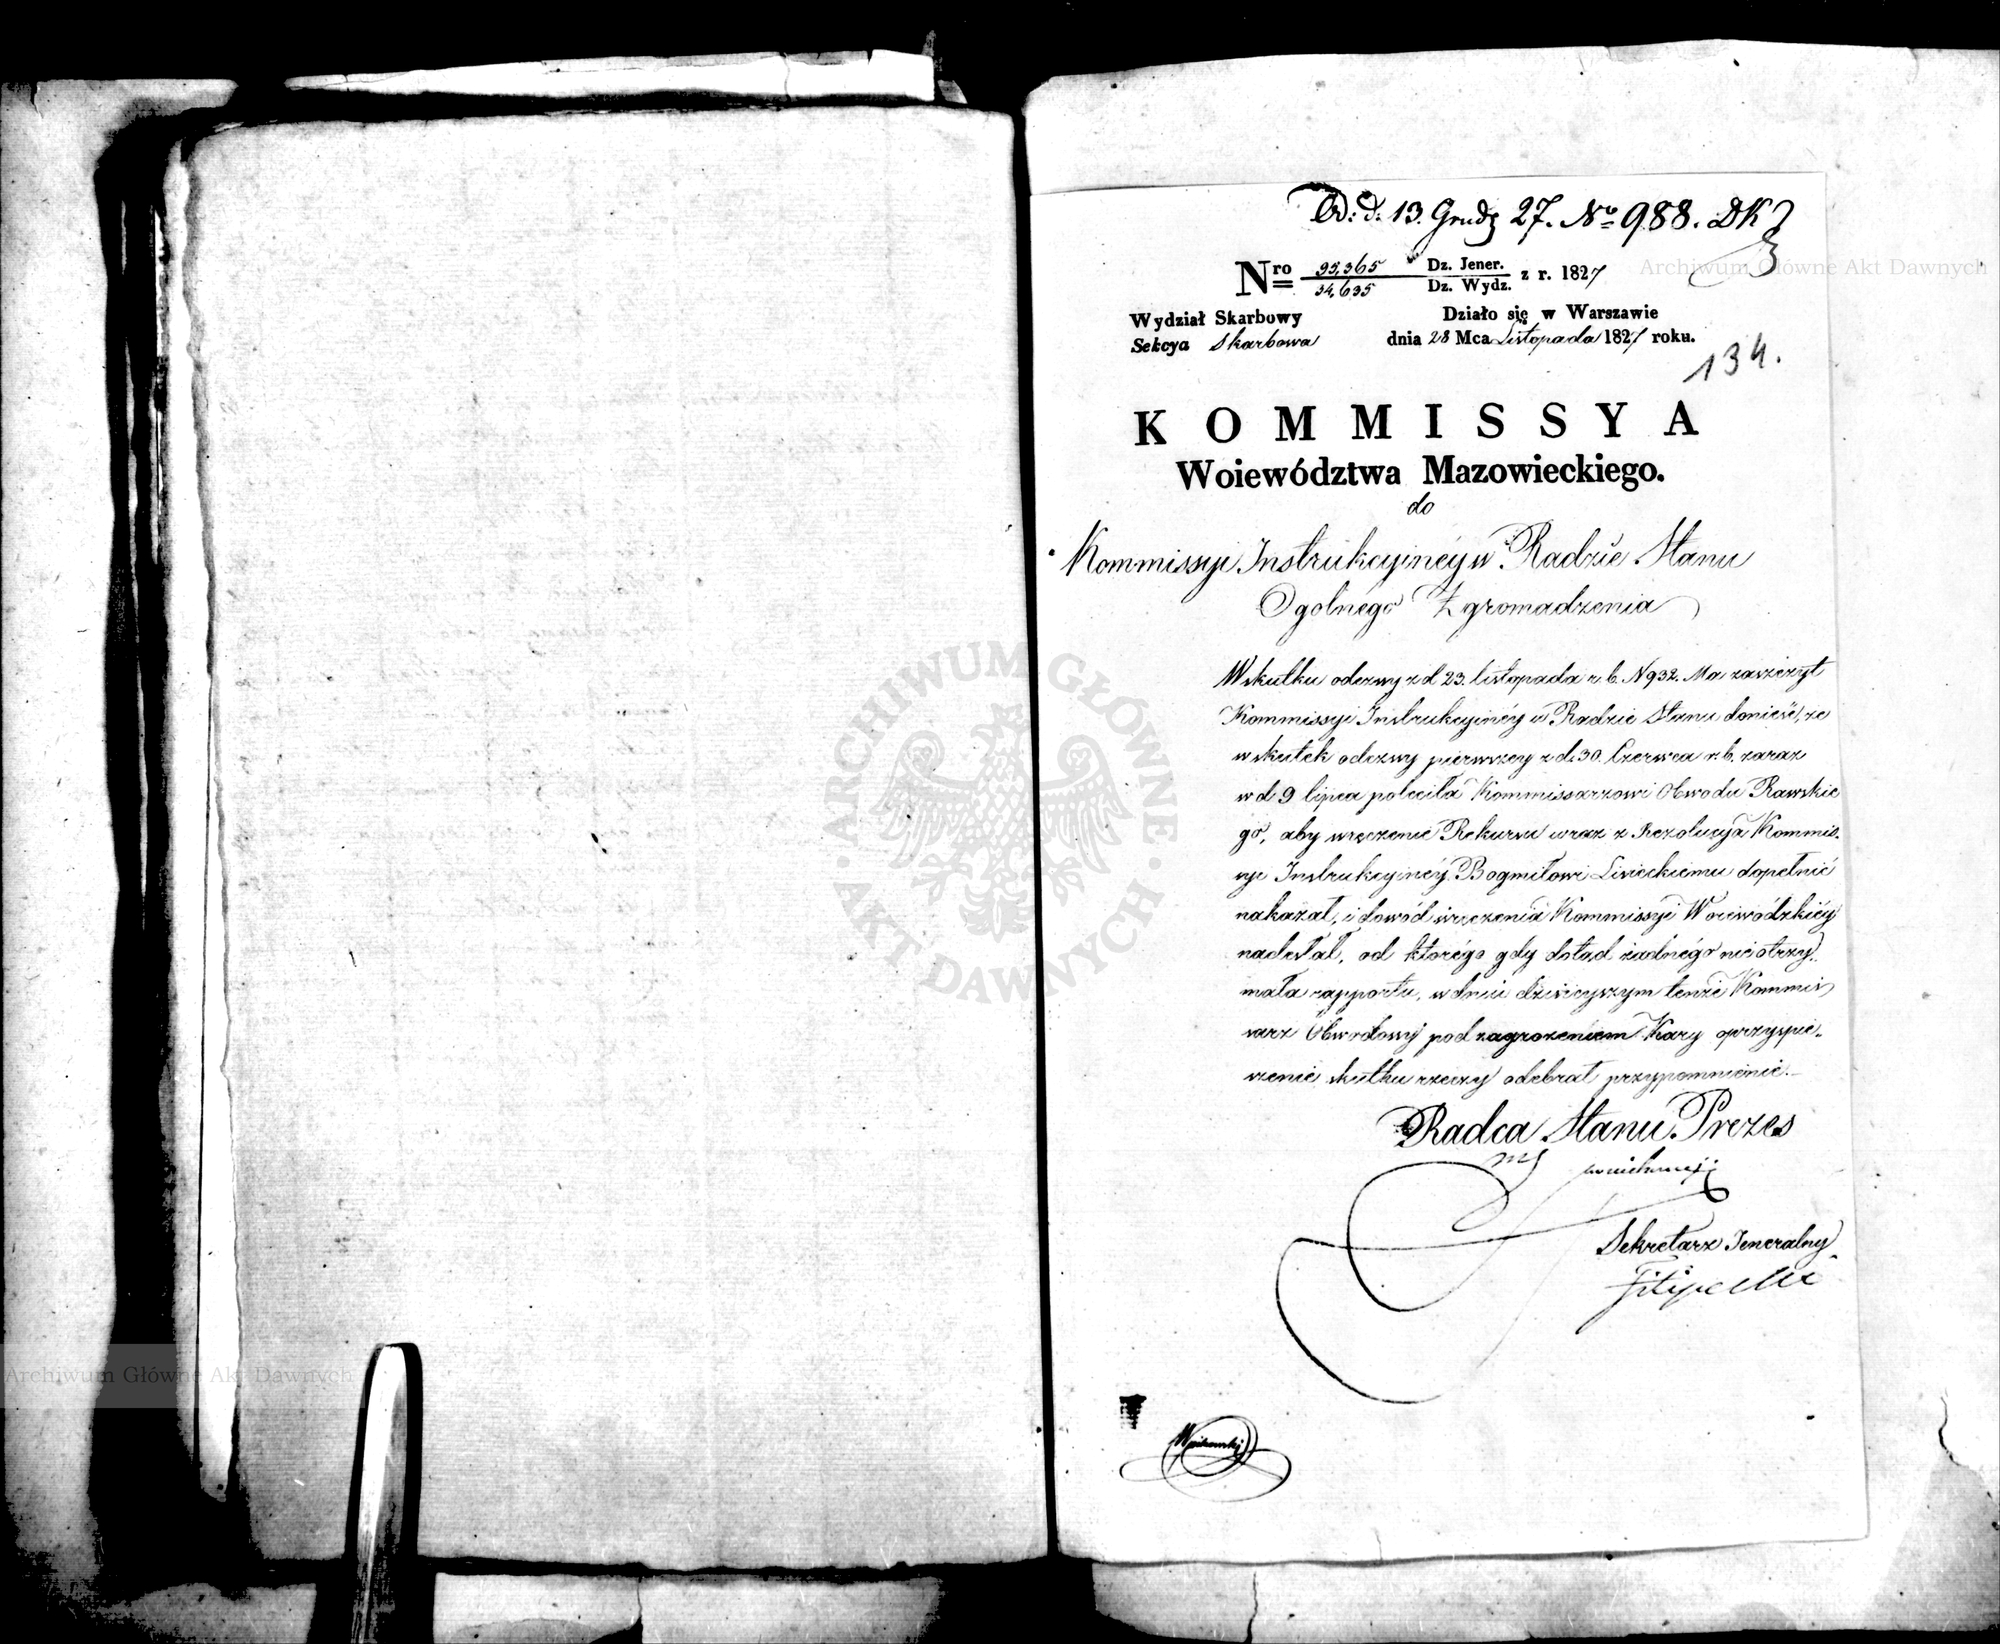 Od: d. 13. Grudz 27. No 988. DK
Nro 95,365 Dz. Jener. z r. 1827
34,635 Dz. Wydz.
Wydział Skarbowy
Sekcya Skarbowa
Działo się w Warszawie
dnia 28 Mca Listopada 1827 roku.
134.
KOMMISSYA
Woiewództwa Mazowieckiego.
do
Kommissyi Instrukcyinéy w Radzie Stanu
Ogolnego Zgromadzenia
W skutku odezwy z d 23. listopada r. b. N 932. Ma zaszczyt
Kommissyi Instrukcyinéy w Radzie Stanu donieść, że
w skutek odezwy pierwszey z d. 30. Czerwca r. b. zaraz
w d 9 lipca poleciła Kommissarzowi Obwodu Rawskie
go, aby wręczenie Rekursu wraz z Rezolucyą Kommis-
syi Instrukcyinéy Bogmiłowi Lisieckiemu dopełnić
nakazał, i dowód wręczenia Kommissyi Woiewódzkiéy
nadesłał, od którego gdy dotąd żadnego nie otrzy-
mała rapportu, w dniu dzisieyszym tenże Kommis
sarz Obwodowy pod zagrożeniem Kary o przyspie-
szenie skutku rzeczy odebrał przypomnienie.
Radca Stanu Prezes
Sekretarz Jeneralny
Filipecki
ARCHIWUM GŁÓWNE AKT DAWNYCH
Archiwum Główne Akt Dawnych
Archiwum Główne Akt Dawnych